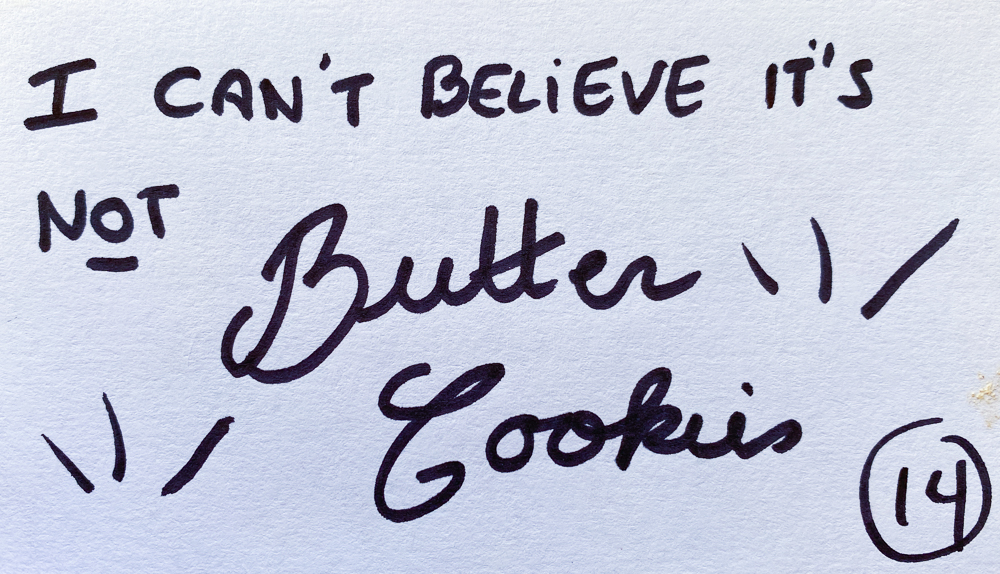 I CAN'T BELiEVE IT'S
NOT
Butter
Cookies
14